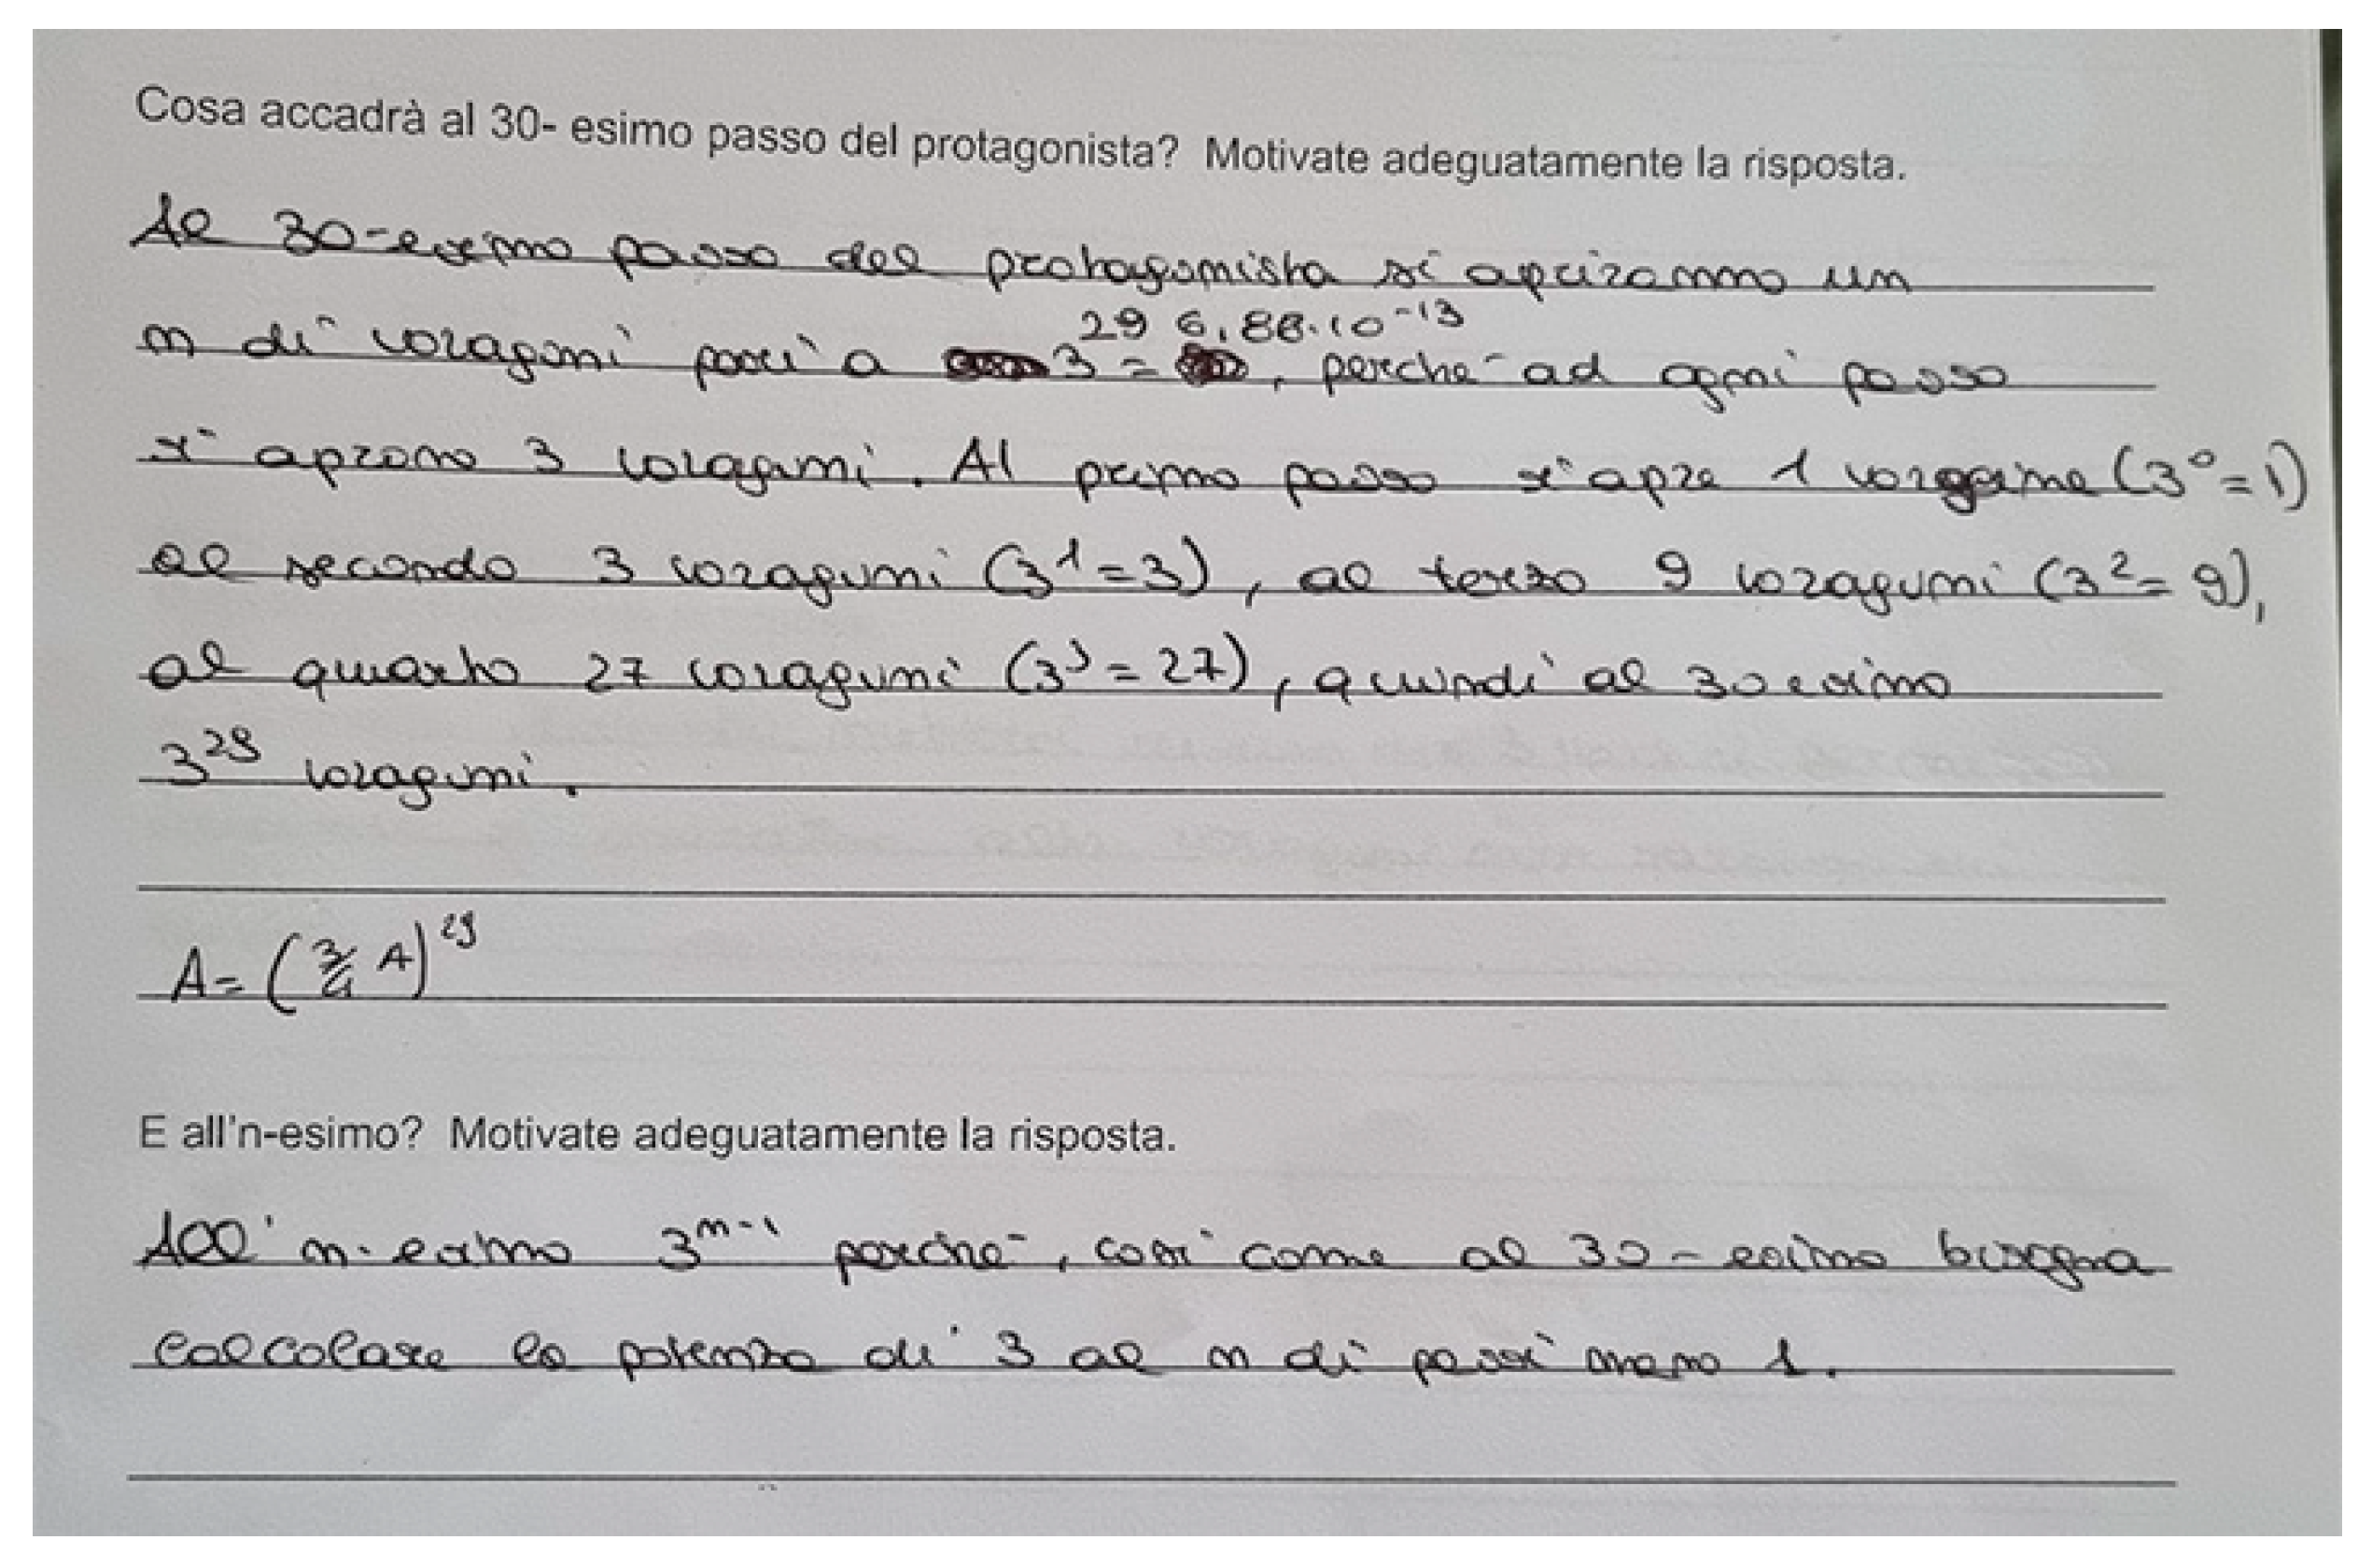 Cosa accadrà al 30- esimo passo del protagonista? Motivate adeguatamente la risposta.
Al 30-esimo passo del protagonista si apriranno un
n di voragini pari a 3^29 = 6,88·10^-13, perché ad ogni passo
si aprono 3 voragini. Al primo passo si apre 1 voragine (3^0 = 1)
al secondo 3 voragini (3^1 = 3), al terzo 9 voragini (3^2 = 9),
al quarto 27 voragini (3^3 = 27), quindi al 30 esimo
3^29 voragini.
A = (3/4 A)^29
E all'n-esimo? Motivate adeguatamente la risposta.
All' n-esimo 3^n-1 perché, così come al 30-esimo bisogna
calcolare la potenza di 3 al n di passi meno 1.